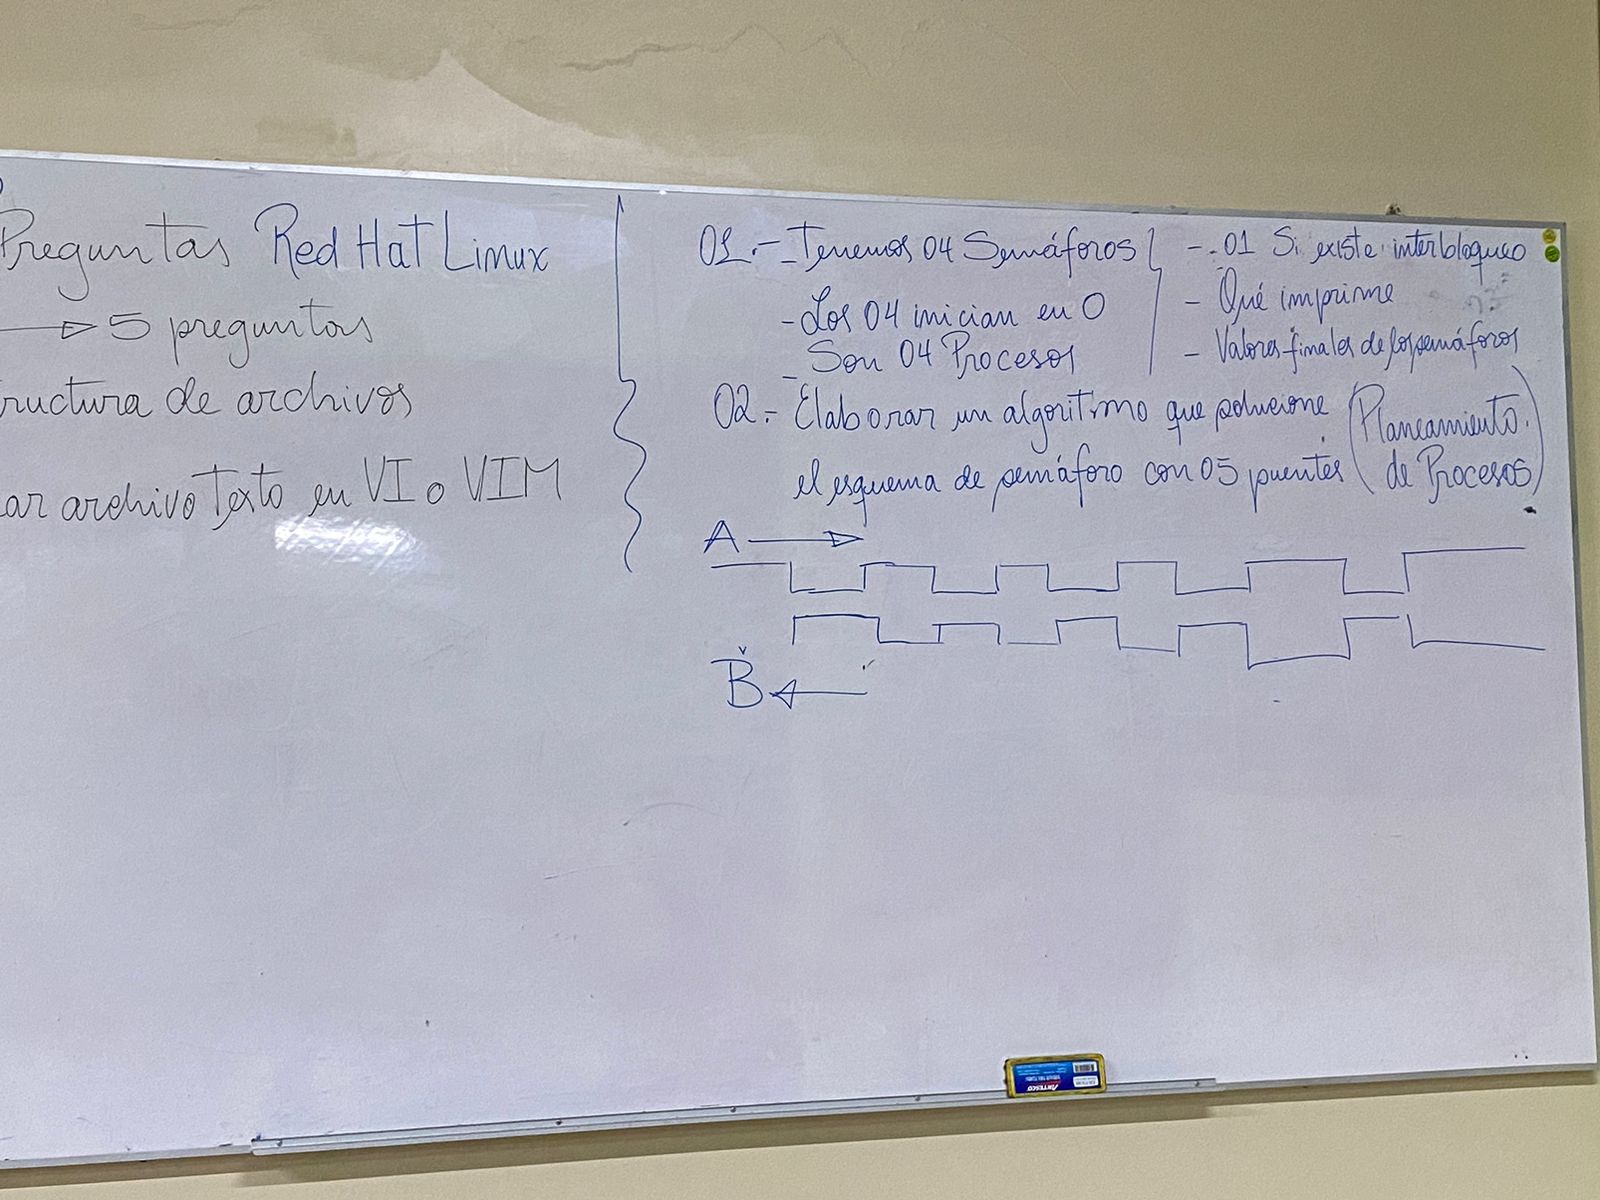 Preguntas Red Hat Linux
5 preguntas
ructura de archivos
ar archivo Texto en VI o VIM
01.- - Tenemos 04 Semáforos
- Los 04 inician en 0
- Son 04 Procesos
- 01 Si existe interbloqueo
- Qué imprime
- Valores finales de los semáforos
02.- Elaborar un algoritmo que solucione
el esquema de semáforo con 05 puentes
(Planeamiento
de Procesos)
A
B
ARTESCO